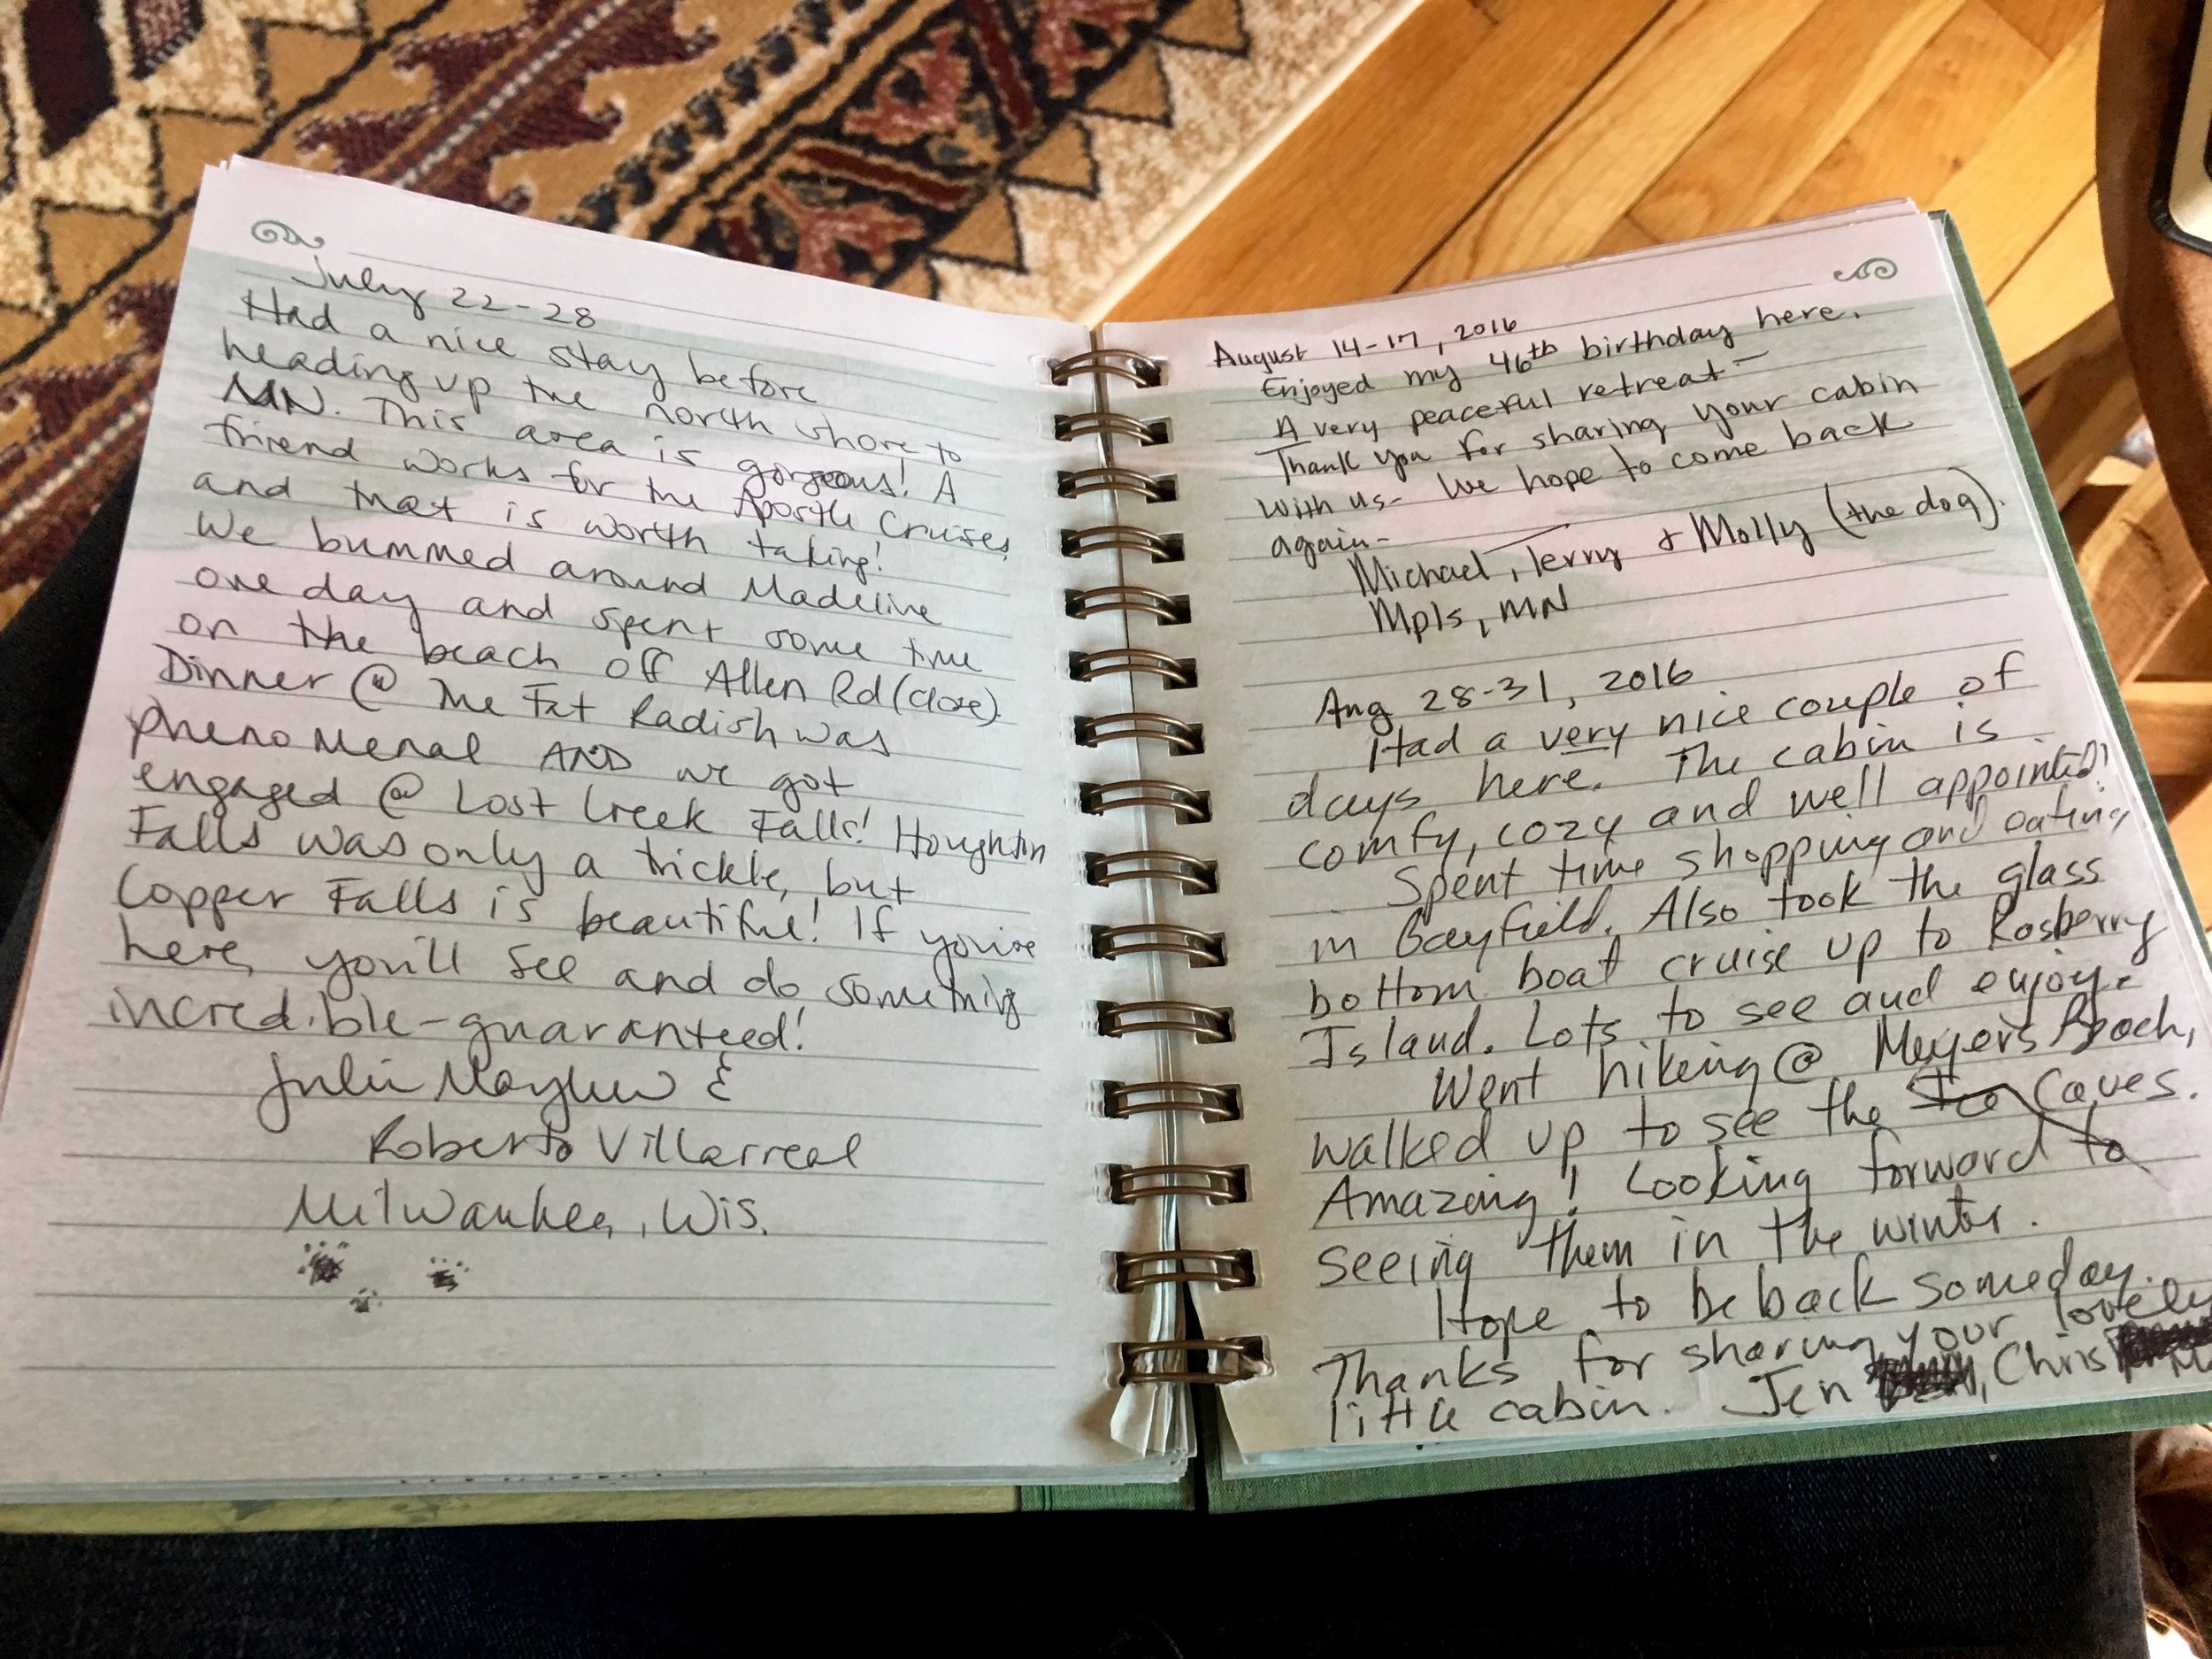 July 22-28
Had a nice stay before
heading up the north shore to
MN. This area is gorgeous! A
friend works for the Apostle Cruises,
and that is worth taking!
We bummed around Madeline
one day and spent some time
on the beach off Allen Rd (close).
Dinner @ The Fat Radish was
phenomenal AND we got
engaged @ Lost Creek Falls! Houghton
Falls was only a trickle, but
Copper Falls is beautiful! If you're
here, you'll see and do something
incredible-guaranteed!
Julie &
Roberto Villarreal
Milwaukee, Wis.
August 14-17, 2016
Enjoyed my 46th birthday here.
A very peaceful retreat-
Thank you for sharing your cabin
with us- We hope to come back
again-
Michael, Terry & Molly (the dog).
Mpls, MN
Aug 28-31, 2016
Had a very nice couple of
days here. The cabin is
comfy, cozy and well appointed!
Spent time shopping and eating
in Bayfield. Also took the glass
bottom boat cruise up to Rasberry
Island. Lots to see and enjoy.
Went hiking @ Meyers Beach,
walked up to see the Ice Caves.
Amazing! Looking forward to
seeing them in the winter.
Hope to be back someday.
Thanks for sharing your lovely
little cabin. Jen, Chris